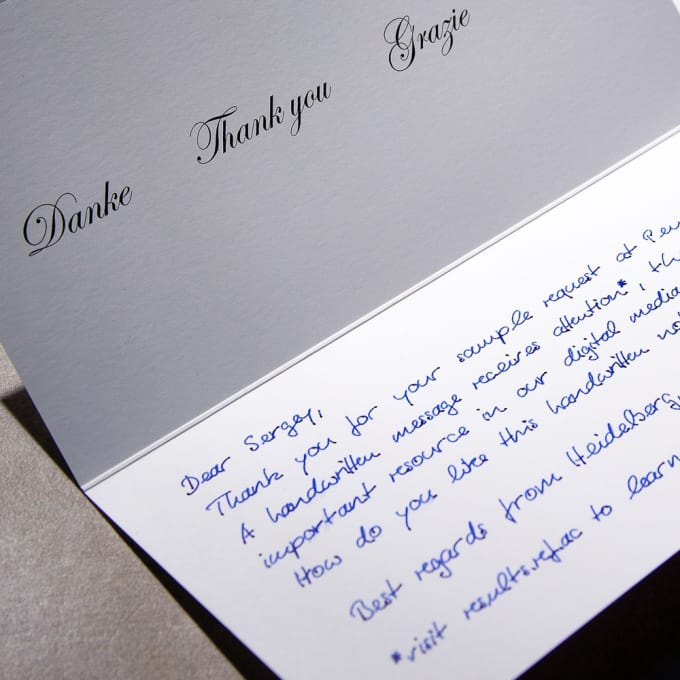 Danke
Thank you
Grazie
Dear Sergey,
Thank you for your sample request at
A handwritten message receives attention*,
important resource in our digital media
How do you like this handwritten
Best regards from Heidelberg,
*visit to learn